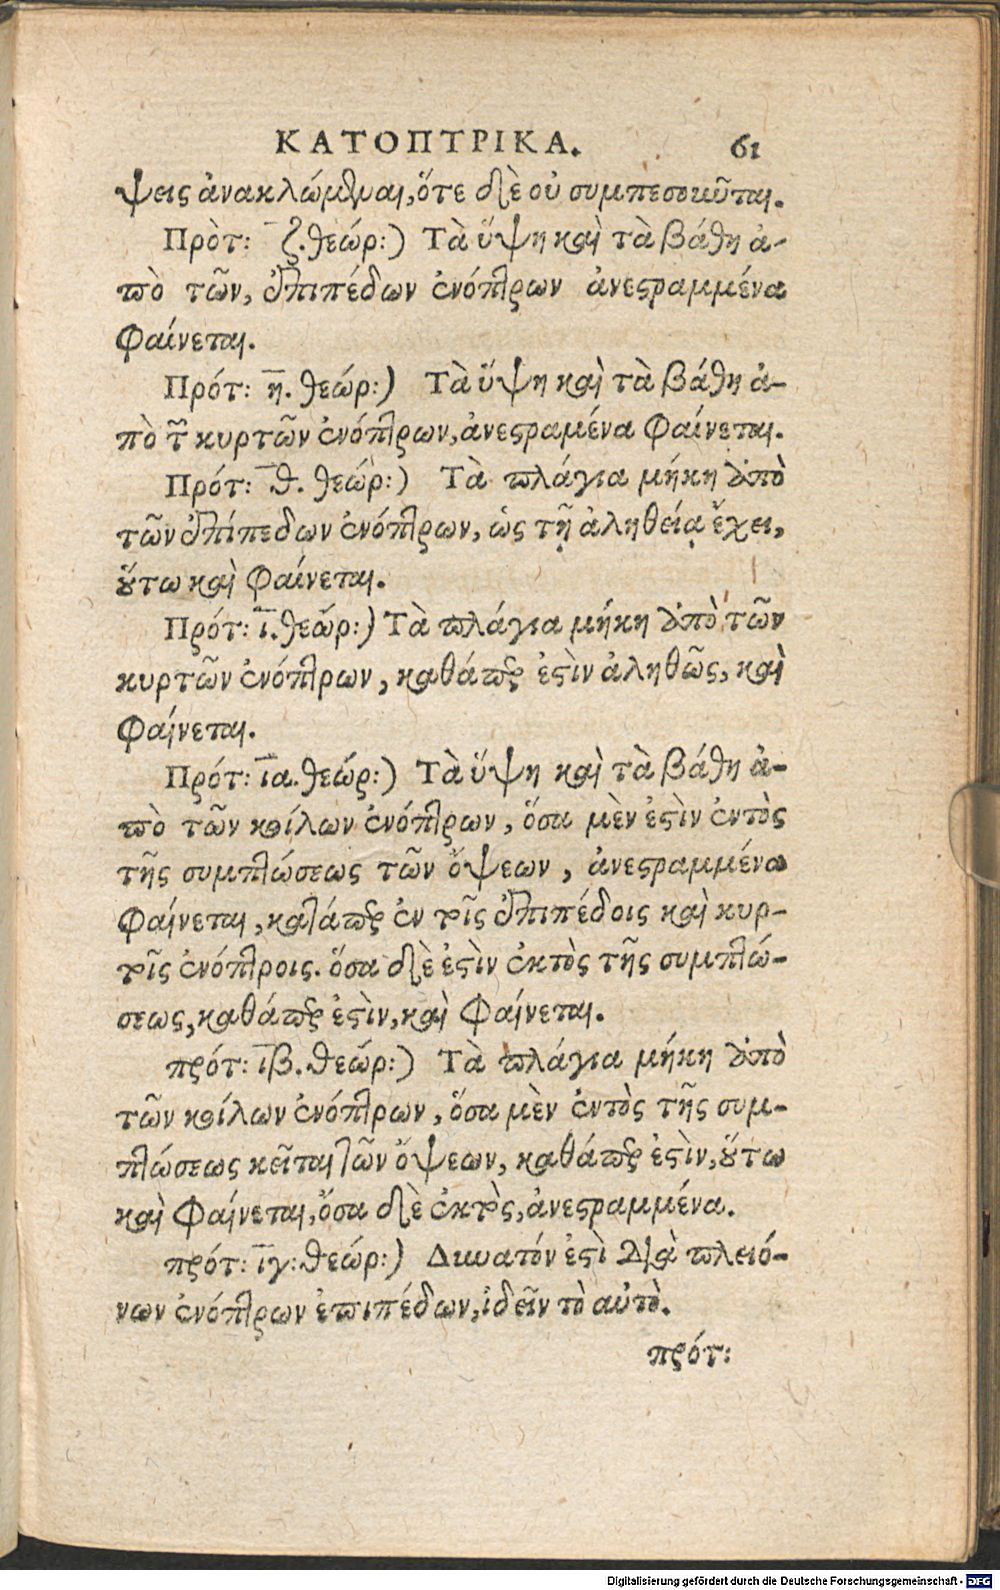 ΚΑΤΟΠΤΡΙΚΑ. 61
ψεις ἀνακλώμεναι, ὅτε δὲ οὐ συμπεσοῦνται.
Πρὸτ: ζ. θεώρ:) Τὰ ὕψη καὶ τὰ βάθη ἀ-
πὸ τῶν, ἐπιπέδων ἐνόπτρων ἀνεςραμμένα
φαίνεται.
Πρότ: η. θεώρ:) Τὰ ὕψη καὶ τὰ βάθη ἀ-
πὸ τ̃ κυρτῶν ἐνόπτρων, ἀνεςραμένα φαίνεται.
Πρότ: θ. θεώρ:) Τὰ πλάγια μήκη ὑπὸ
τῶν ἐπίπεδων ἐνόπτρων, ὡς τῇ ἀληθείᾳ ἔχει,
ὅτω καὶ φαίνεται.
Πρότ: ῑ. θεώρ:) Τὰ πλάγια μήκη ὑπὸ τῶν
κυρτῶν ἐνόπτρων, καθάπερ ἐςὶν ἀληθῶς, καὶ
φαίνεται.
Πρότ: ια. θεώρ:) Τὰ ὕψη καὶ τὰ βάθη ἀ-
πὸ τῶν κοίλων ἐνόπτρων, ὅσα μὲν ἐςὶν ἐντὸς
τῆς συμπτώσεως τῶν ὄψεων, ἀνεςραμμένα
φαίνεται, καθάπερ ἐν τοῖς ἐπιπέδοις καὶ κυρ-
τοῖς ἐνόπτροις. ὅσα δὲ ἐςὶν ἐκτὸς τῆς συμπτώ-
σεως, καθάπερ ἐςὶν, καὶ φαίνεται.
πρότ: ιβ. θεώρ:) Τὰ πλάγια μήκη ὑπὸ
τῶν κοίλων ἐνόπτρων, ὅσα μὲν ἐντὸς τῆς συμ-
πτώσεως κεῖται τῶν ὄψεων, καθάπερ ἐςὶν, ὅτω
καὶ φαίνεται, ὅσα δὲ ἐκτὸς, ἀνεςραμμένα.
πρότ: ιγ: θεώρ:) Δυνατόν ἐςὶ Διὰ πλειό-
νων ἐνόπτρων ἐπιπέδων, ἰδεῖν τὸ αὐτὸ.
πρότ:
Digitalisierung gefördert durch die Deutsche Forschungsgemeinschaft - DFG